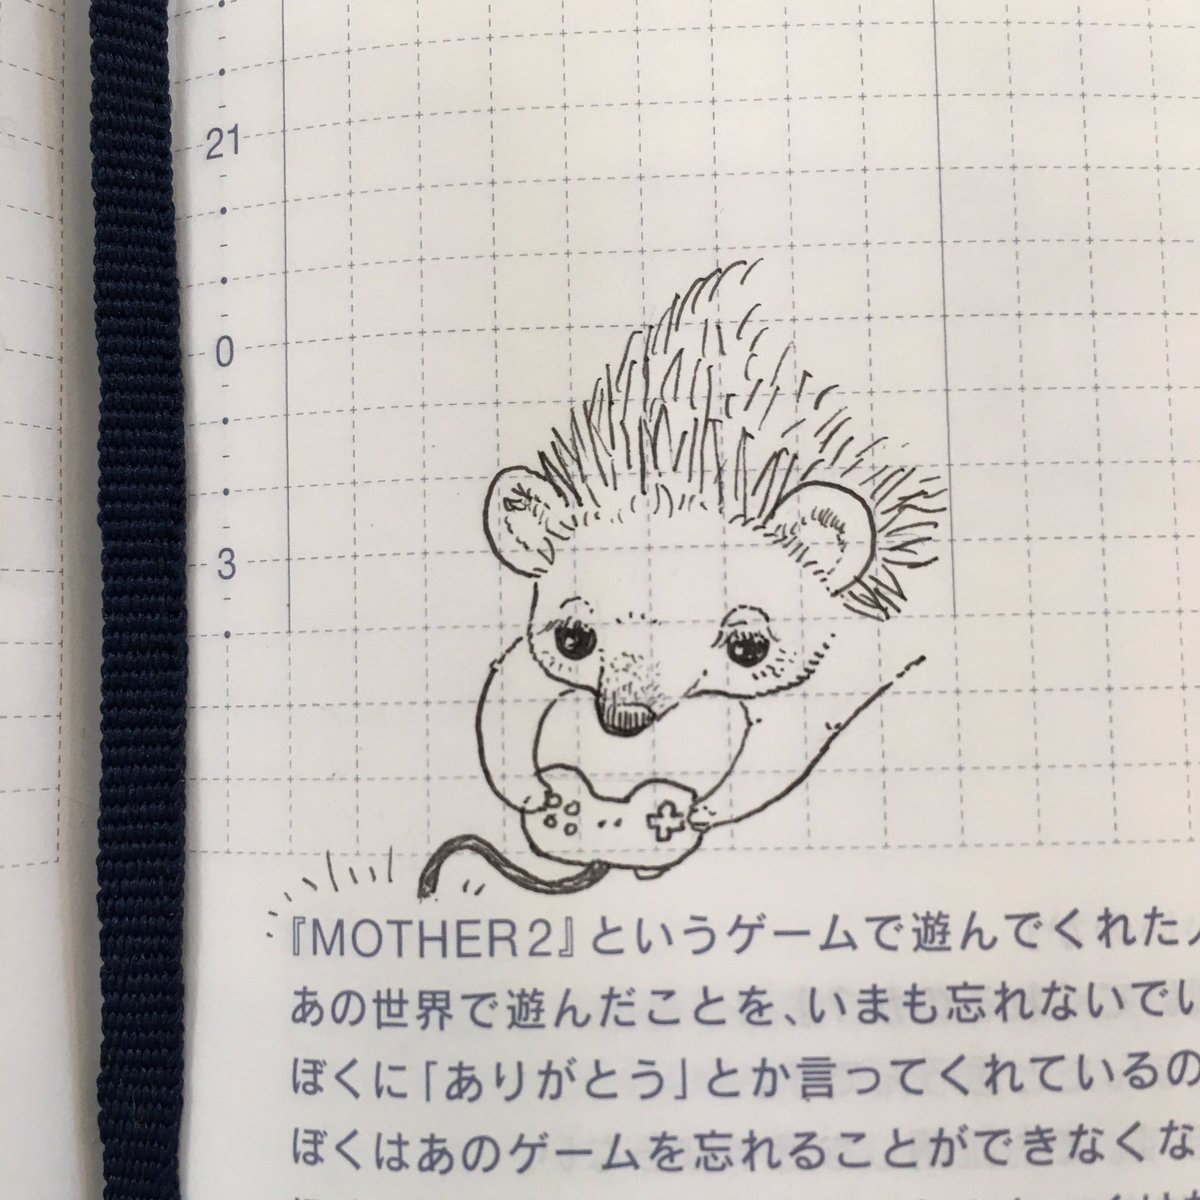 21
0
3
『MOTHER2』というゲームで遊んでくれた
あの世界で遊んだことを、いまも忘れないでい
ぼくに「ありがとう」とか言ってくれているの
ぼくはあのゲームを忘れることができなくな